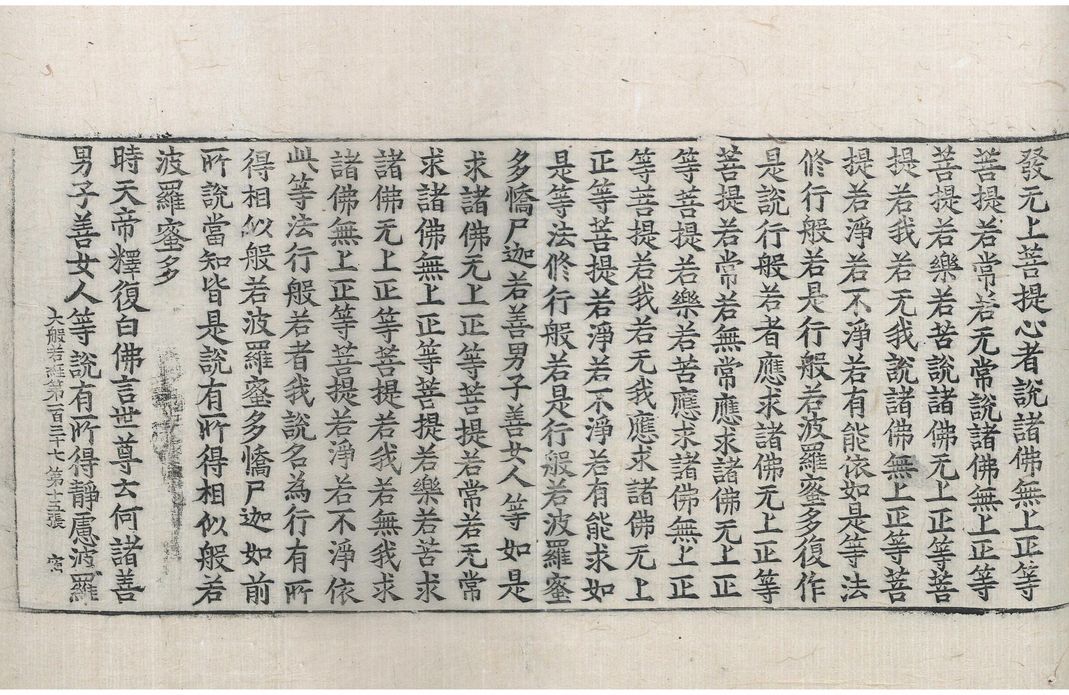 發无上菩提心者說諸佛無上正等
菩提若常若无常說諸佛無上正等
菩提若樂若苦說諸佛无上正等菩
提若我若无我說諸佛無上正等菩
提若淨若不淨若有能依如是等法
修行般若是行般若波羅蜜多復作
是說行般若者應求諸佛无上正等
菩提若常若無常應求諸佛无上正
等菩提若樂若苦應求諸佛無上正
等菩提若我若无我應求諸佛无上
正等菩提若淨若不淨若有能求如
是等法修行般若是行般若波羅蜜
多憍尸迦若善男子善女人等如是
求諸佛无上正等菩提若常若无常
求諸佛無上正等菩提若樂若苦求
諸佛无上正等菩提若我若無我求
諸佛無上正等菩提若淨若不淨依
此等法行般若者我說名為行有所
得相似般若波羅蜜多憍尸迦如前
所說當知皆是說有所得相似般若
波羅蜜多
時天帝釋復白佛言世尊云何諸善
男子善女人等說有所得靜慮波羅
大般若經第一百三十七 第十五張 宙